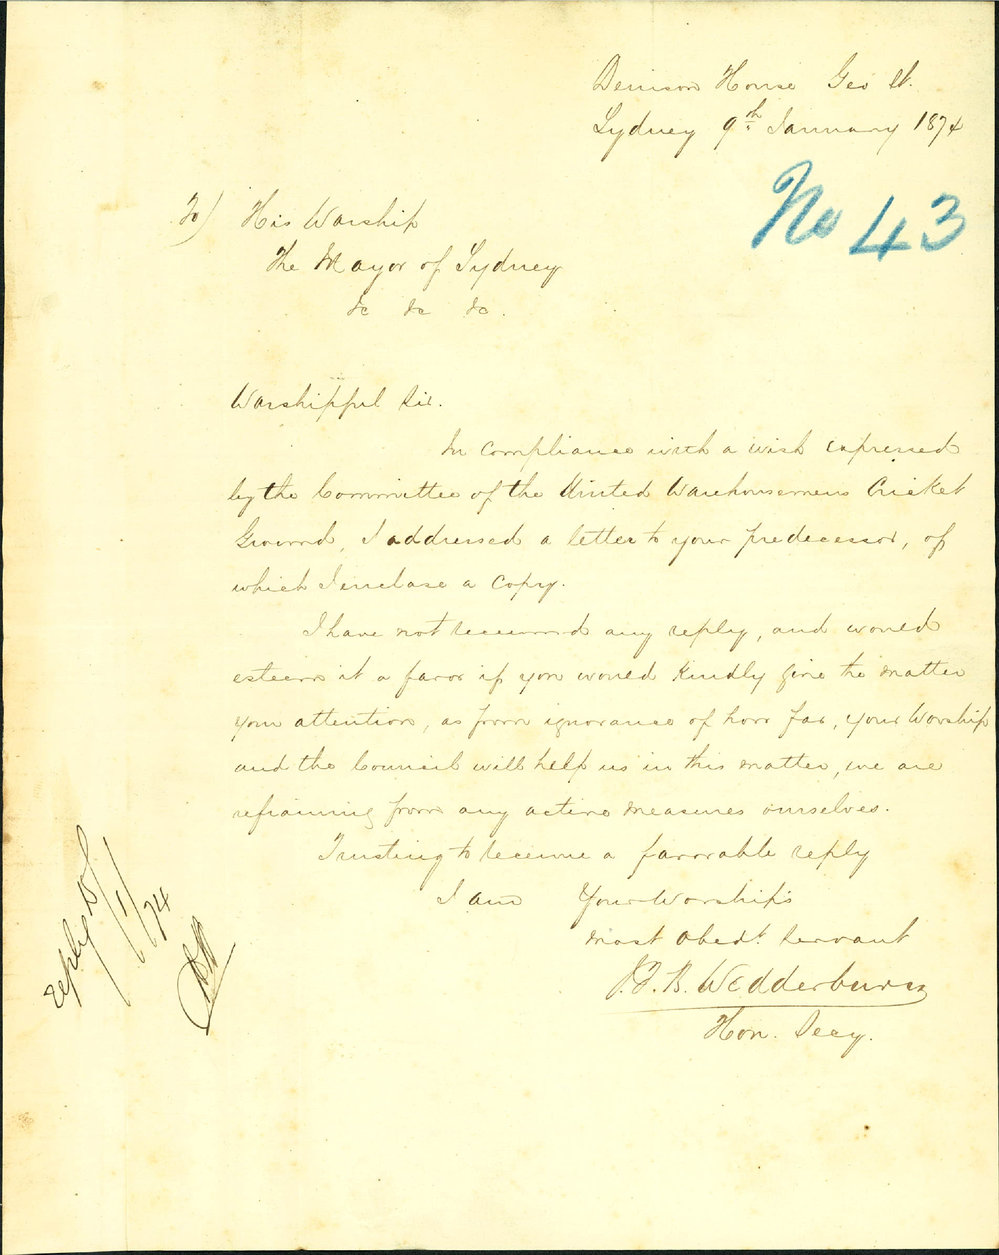 Denison House Geo St.
Sydney 9th January 1874
No 43
To) His Worship
The Mayor of Sydney
&c &c &c.
Worshipful Sir.
In compliance with a wish expressed
by the Committee of the United Warehousemens Cricket
Ground, I addressed a letter to your predecessor, of
which I enclose a copy.
I have not received any reply, and would
esteem it a favor if you would kindly give the matter
your attention, as from ignorance of how far, your Worship
and the Council will help us in this matter, we are
refraining from any active measures ourselves.
Trusting to receive a favorable reply
I am Your Worship's
most obedt. servant
Wedderburn
Hon. Secy.
reply
/1/74